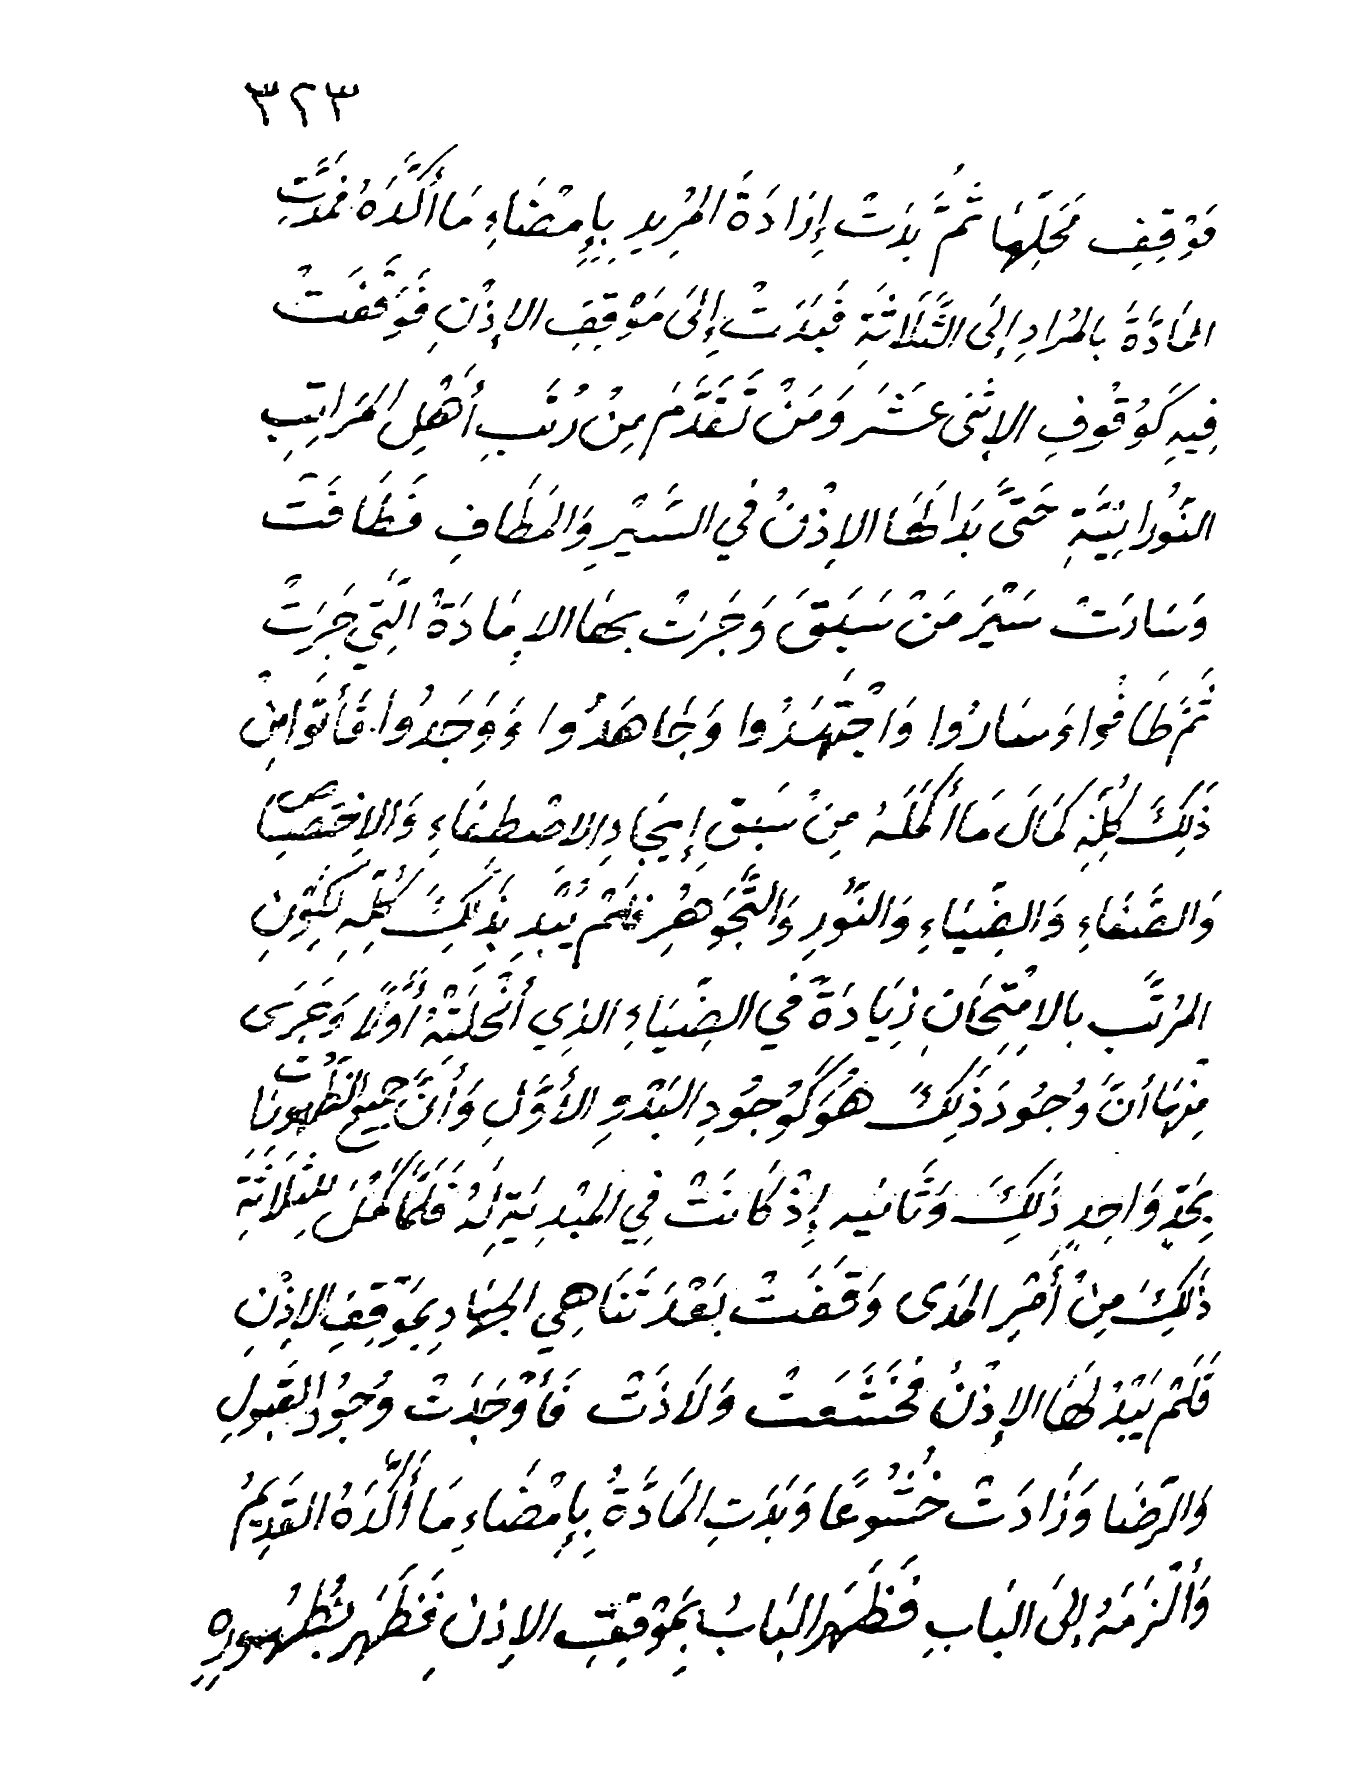 ٣٢٣
مَوْقِفِ مَحَلِّهَا ثُمَّ بَدَتْ إِرَادَةُ المُرِيدِ بِإِمْضَاءِ مَا أَكَّدَاهُ فَمَدَّتِ
المَادَّةُ بالمُرَادِ إِلَى الثَّلَاثَةِ فَبَدَتْ إِلَى مَوْقِفِ الإِذْنِ فَوَقَفَتْ
فِيهِ كَوُقُوفِ الإِثْنَى عَشَرَ وَمَنْ تَقَدَّمَ مِنْ رُتَبِ أَهْلِ المَرَاتِبِ
النُّورانِيَّةِ حَتَّى بَدَا لَهَا الإِذْنُ في السَّيْرِ وَالمَطَافِ فَطَافَتْ
وَسَارَتْ سَيْرَ مَنْ سَبَقَ وَجَرَتْ بِهَا الإِمَادَةُ الَّتِي جَرَتْ
ثُمَّ طَافُوا وَسَارُوا وَاجْتَهَدُوا وَجَاهَدُوا وَوَجَدُوا فَأَتَوْا مِنْ
ذَلِكَ كُلِّهِ كَمَالَ مَا أَكْمَلَهُ مِنْ سَبَقِ إِيجَادِ الاصْطِفَاءِ وَالاِخْتِصَاصِ
وَالصَّفَاءِ وَالضِّيَاءِ وَالنُّورِ وَالتَّجَوْهُرِ فَلَمْ يَبْدِ بِذَلِكَ كُلِّهِ لِكَوْنِ
المُرَتَّبِ بالامْتِحَانِ زِيَادَةً في الضِّيَاءِ الذِي أَنْحَلَتْهُ أَوَّلًا وَجَرَى
مِنْهَا أَنَّ وُجُودَ ذَلِكَ هُوَ كَوُجُودِ البَدْوِ الأَوَّلِ وَأَنَّ جَمِيعَ الظُّهُورَاتِ
بِحَدٍّ وَاحِدٍ ذَلِكَ وَثَانيه إِذْ كَانَتْ فِي المَبْدِيَةِ لَهُ فَلَمَّا كَمُلَ لِلثَّلَاثَةِ
ذَلِكَ مِنْ أَمْرِ المَدَى وَقَفَتْ بَعْدَ تَنَاهِي الجِهَادِ بِمَوْقِفِ الإِذْنِ
فَلَمْ يَبْدُ لَهَا الإِذْنُ فَخَشَعَتْ وَلَاذَتْ فَأَوْجَدَتْ وُجُودَ القَبُولِ
وَالرِّضَا وَزَادَتْ خُشُوعًا وَبَدَتِ المَادَّةُ بِإِمْضَاءِ مَا أَكَّدَهُ القَدِيمُ
وَأَلْزَمَهُ إِلَى البَابِ فَظَهَرَ البَابُ بِمَوْقِفِ الإِذنِ فَظَهَرَ بِظُهُورِهِ